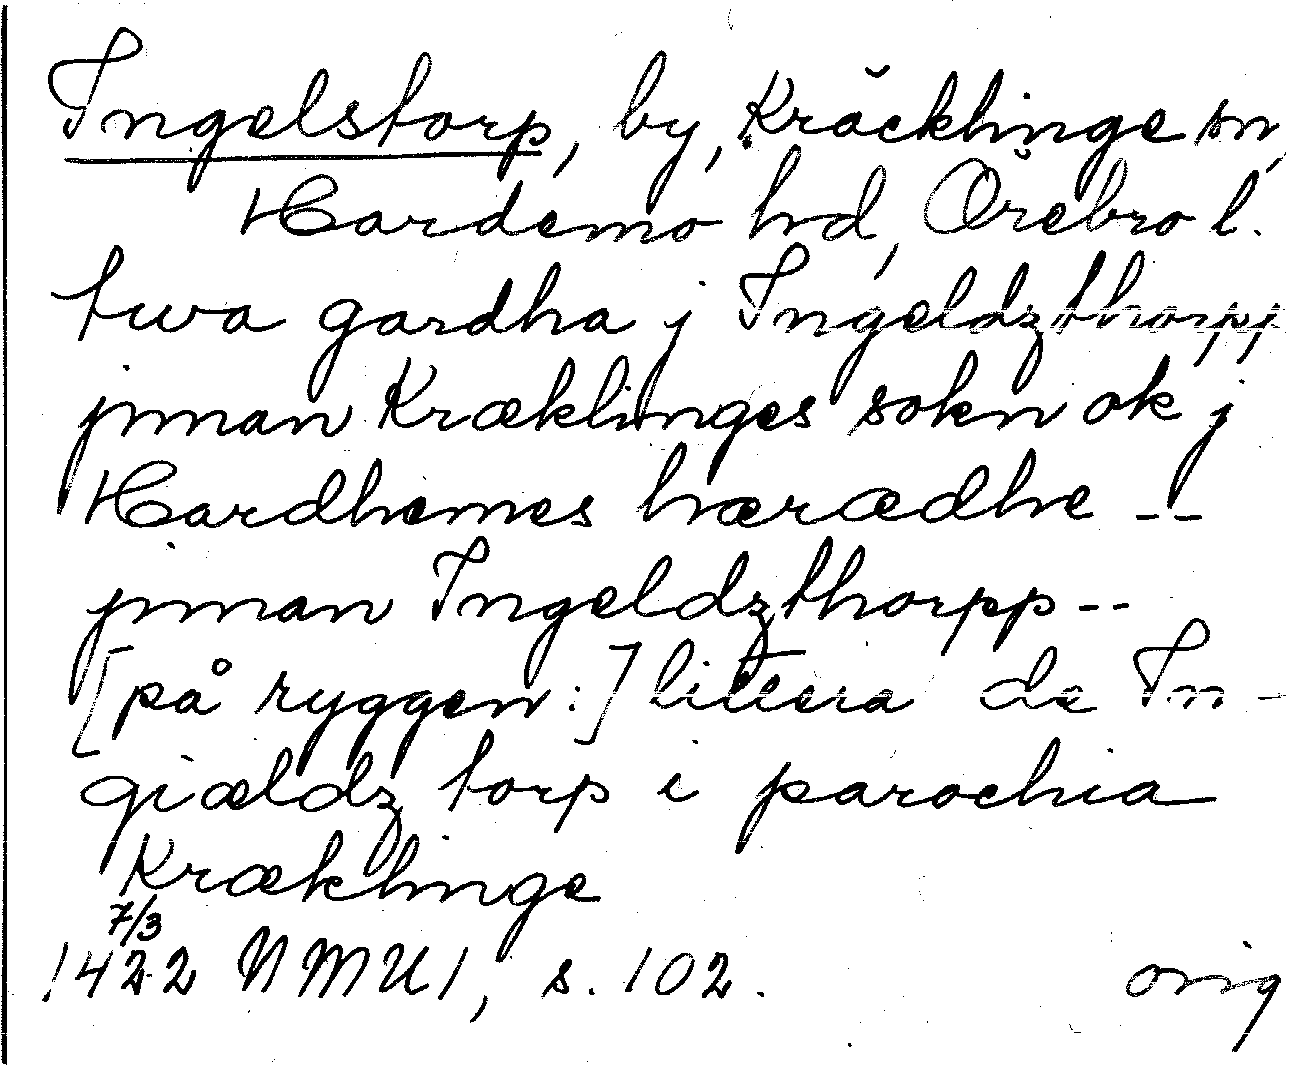 Ingelstorp, by, Kräcklinge sn,
Hardemo hd, Örebro l.
twa gardha j Ingeldzthorpp
jnnan Kræklinges sokn ok j
Hardhemes hæradhe --
jnnan Ingeldzthorpp --
[på ryggen:] littera de In-
giældz torp i parochia
Kræklinge
7/3
1422 NMU 1, s. 102. orig